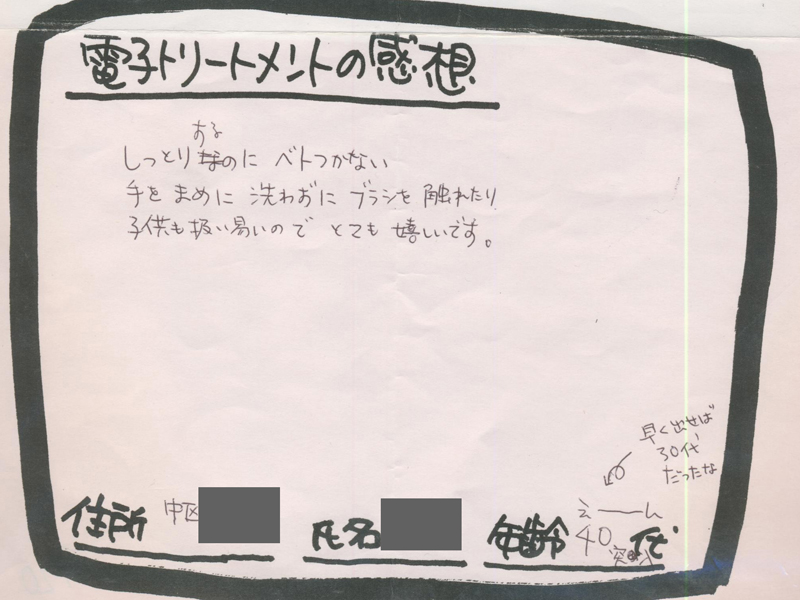 電子トリートメントの感想
する
しっとりなのに ベトつかない
手を まめに 洗わずに ブラシを 触れたり
子供も扱い易いので とても 嬉しいです。
早く出せば
30代
だったな
えーーん
住所 中区
氏名
年齢 40 突入 代